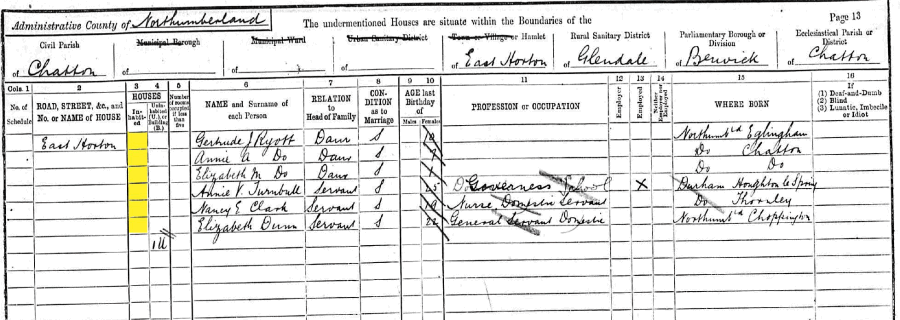 Administrative County of Northumberland The undermentioned Houses are situate within the Boundaries of the Page 13
Civil Parish Municipal Borough Municipal Ward Urban Sanitary District Town or Village or Hamlet Rural Sanitary District Parliamentary Borough or Division Ecclesiastical Parish or District
of Chatton of of of of East Horton of Glendale of Berwick of Chatton
Cols. 1 2 3 4 5 6 7 8 9 10 11 12 13 14 15 16
No. of Schedule ROAD, STREET, &c., and No. or NAME of HOUSE HOUSES Inhabited Uninhabited (U.) or Building (B.) Number of rooms occupied if less than five NAME and Surname of each Person RELATION to Head of Family CONDITION as to Marriage AGE last Birthday of Males Females PROFESSION or OCCUPATION Employer Employed Neither Employer nor Employed WHERE BORN (1) Deaf-and-Dumb (2) Blind (3) Lunatic, Imbecile or Idiot
East Horton Gertrude J Ryott Daur S Northumbd Eglingham
Annie A Do Daur S Do Chatton
Elizabeth M Do Daur S Do Do
Annie V. Turnbull Servant S 25 Governess School X Durham Houghton le Spring
Nancy E Clark Servant S 19 Nurse Domestic Servant Do Thornley
Elizabeth Dunn Servant S 22 General Servant Domestic Northumbd Choppington
1U